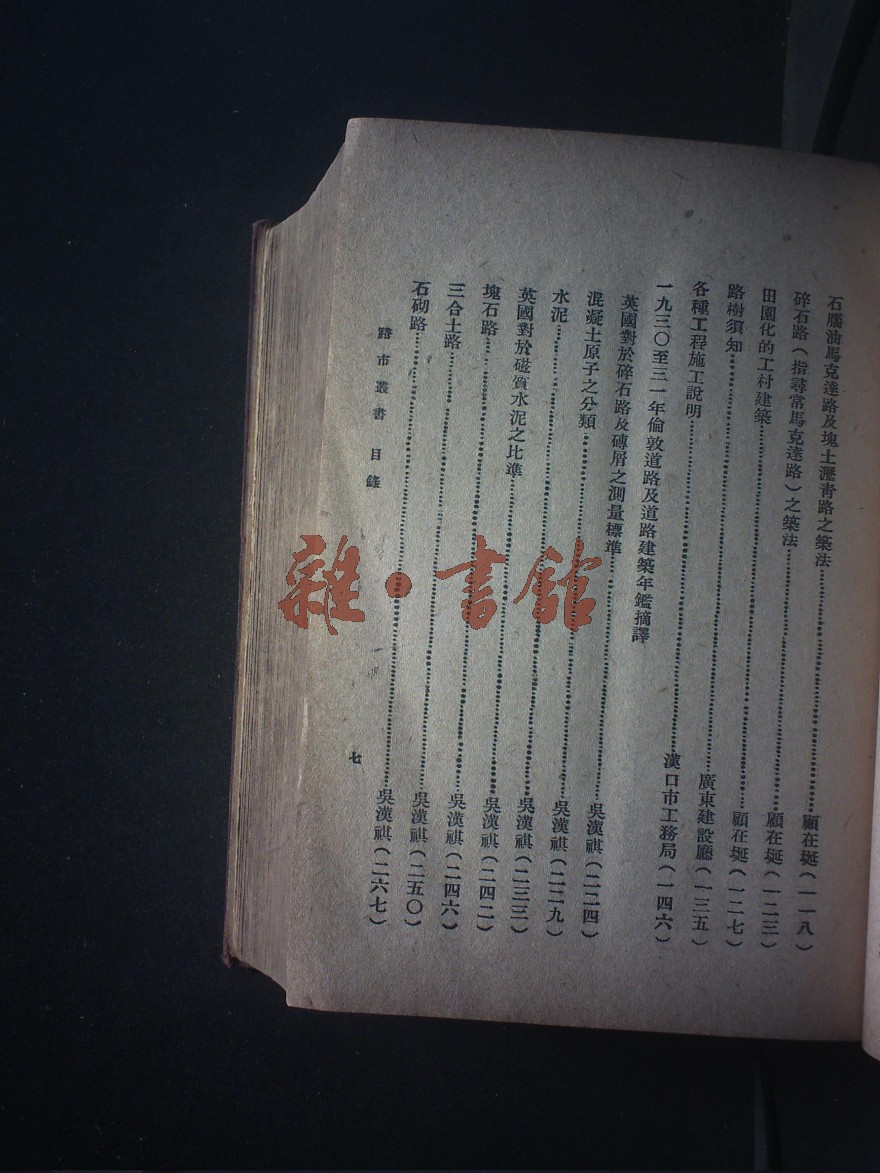 石腦油馬克達路及塊土瀝靑路之築法……顧在埏(一一八)
碎石路(指尋常馬克達路)之築法……顧在埏(一二三)
田園化的工村建築……顧在埏(一二七)
路樹須知……廣東建設廳(一三五)
各種工程施工說明……漢口市工務局(一四六)
一九三〇至三一年倫敦道路及道路建築年鑑摘譯
英國對於碎石路及磚屑之測量標準……吳漢祺(二二四)
混凝土原子之分類……吳漢祺(二二九)
水泥……吳漢祺(二三三)
英國對於磁質水泥之比準……吳漢祺(二四二)
塊石路……吳漢祺(二四六)
三合土路……吳漢祺(二五〇)
石砌路……吳漢祺(二六七)
路市叢書 目錄
七
雜·書館